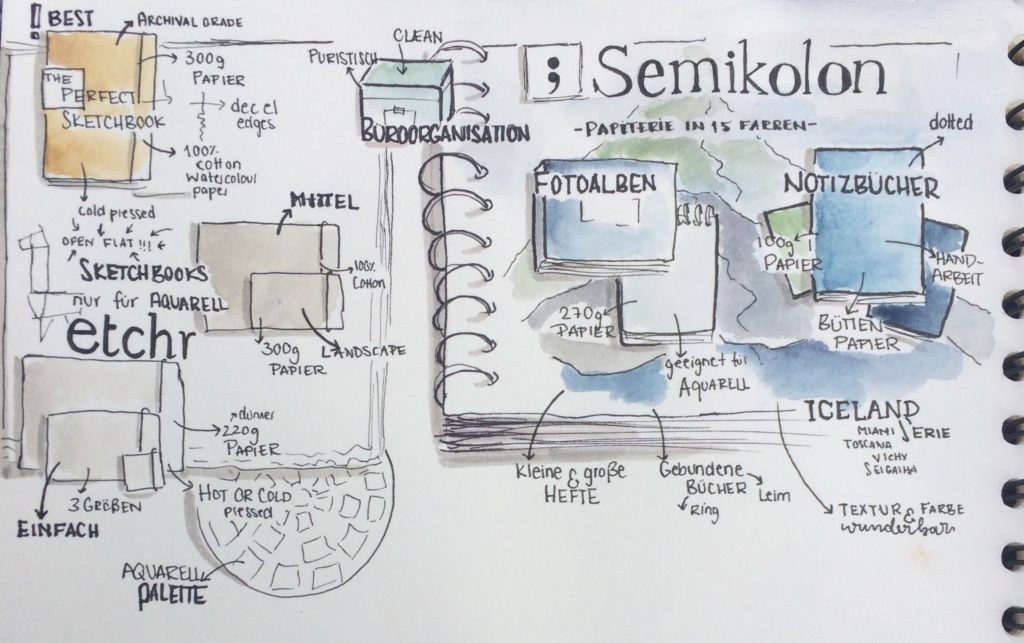 ! BEST
ARCHIVAL GRADE
300g
PAPIER
THE
PERFECT
SKETCHBOOK
dec el
edges
100%
cotton
watercolour
paper
cold pressed
OPEN FLAT !!!
SKETCHBOOKS
nur für AQUARELL
etchr
MITTEL
100%
Cotton
300g
PAPIER
LANDSCAPE
dünner
220g
PAPIER
3 GRÖßEN
HOT OR COLD
pressed
EINFACH
AQUARELL
PALETTE
CLEAN
PURISTISCH
BÜROORGANISATION
; Semikolon
- PAPITERIE IN 15 FARBEN -
FOTOALBEN
270g
PAPIER
geeignet für
AQUARELL
dotted
NOTIZBÜCHER
100g
PAPIER
HAND-
ARBEIT
BÜTTEN
PAPIER
ICELAND
SERIE
MIAMI
TOSCANA
VICHY
SEIGAIHA
Kleine & große
HEFTE
Gebundene
BÜCHER
Leim
Ring
TEXTUR & FARBE
wunderbar